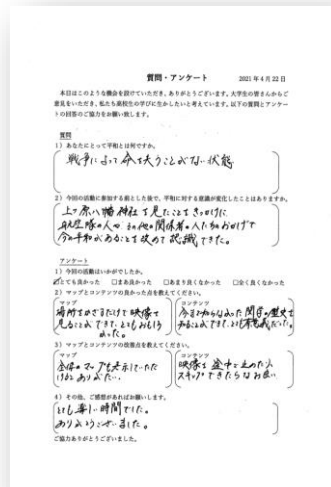 質問・アンケート 2021年4月22日
本日はこのような機会を設けていただき、ありがとうございます。大学生の皆さんからご
意見をいただき、私たち高校生の学びに生かしたいと考えています。以下の質問とアンケー
トの回答のご協力をお願い致します。
質問
1）あなたにとって平和とは何ですか。
戦争によって命を失うことがない状態
2）今回の活動に参加する前とした後で、平和に対する意識が変化したことはありますか。
上ヶ原八幡神社を見たことをきっかけに
航空隊の人や その他の関係者の人たちのおかげで
今の平和があることを改めて認識できた。
アンケート
1）今回の活動はいかがでしたか。
☑とても良かった □まあ良かった □あまり良くなかった □全く良くなかった
2）マップとコンテンツの良かった点を教えてください。
マップ
場所をかざるだけで映像を
見ることができて、とてもおもしろ
かった。
コンテンツ
今まで知らなかった関学の歴史を
知ることができて、とても
3）マップとコンテンツの改善点を教えてください。
マップ
全体のマップも表示していただ
けるとありがたい。
コンテンツ
映像を途中で止めたり
スキップできたらなお良い
4）その他、ご感想があればお願いします。
とても楽しい時間でした。
ありがとうございました。
ご協力ありがとうございました。